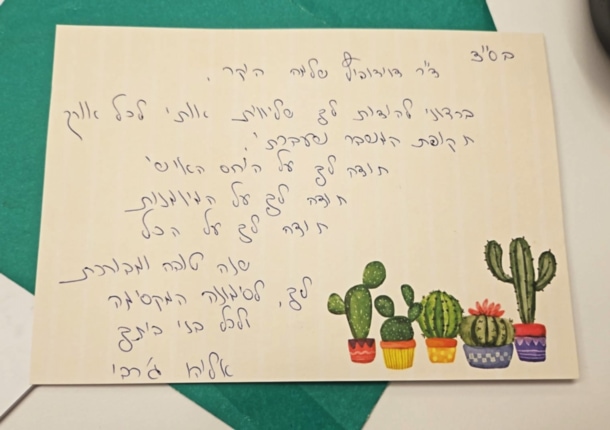 בס"ד
ד"ר דוידוביץ שלמה היקר.
ברצוני להודות לך שליווית אותי לכל אורך
תקופת המשבר שעברתי.
תודה לך על היחס האישי
תודה לך על המיומנות
תודה לך על הכל
שנה טובה ומבורכת
לך, לסימונה המקסימה
ולכל בני ביתך
אליהו ג'רבי